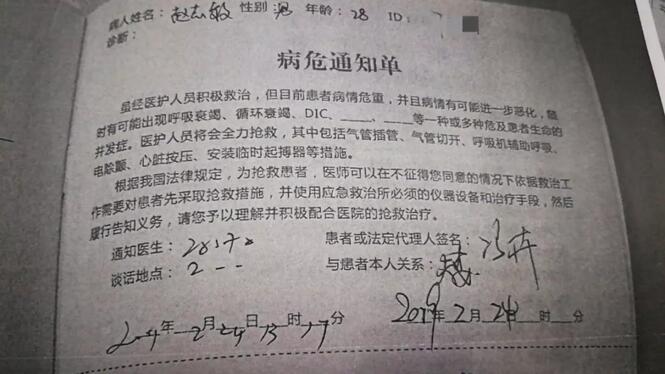 病人姓名：赵志毅 性别 男 年龄：28 ID：
诊断：
病危通知单
虽经医护人员积极救治，但目前患者病情危重，并且病情有可能进一步恶化，随
时有可能出现呼吸衰竭、循环衰竭、DIC、____、____等一种或多种危及患者生命的
并发症。医护人员将会全力抢救，其中包括气管插管、气管切开、呼吸机辅助呼吸、
电除颤、心脏按压、安装临时起搏器等措施。
根据我国法律规定，为抢救患者，医师可以在不征得您同意的情况下依据救治工
作需要对患者先采取抢救措施，并使用应急救治所必须的仪器设备和治疗手段，然后
履行告知义务，请您予以理解并积极配合医院的抢救治疗。
通知医生： 患者或法定代理人签名：
谈话地点： 与患者本人关系：
年 2月24日13时17分 2019年2月24日 时 分